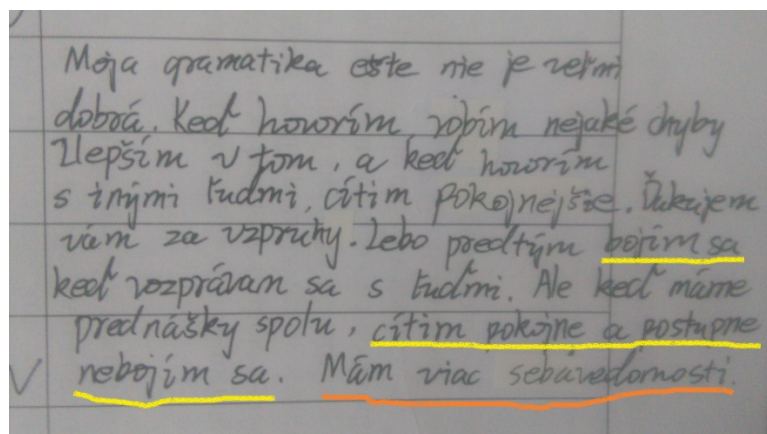 Moja gramatika ešte nie je veľmi
dobrá. Keď hovorím robím nejaké chyby
Zlepším v tom, a keď hovorím
s inými ľuďmi, cítim pokojnejšie. Ďakujem
vám za vzpruhy. Lebo predtým bojím sa
keď vozprávam sa s ľuďmi. Ale keď máme
prednášky spolu, cítim pokojne a postupne
nebojím sa. Mám viac sebavedomosti.
V